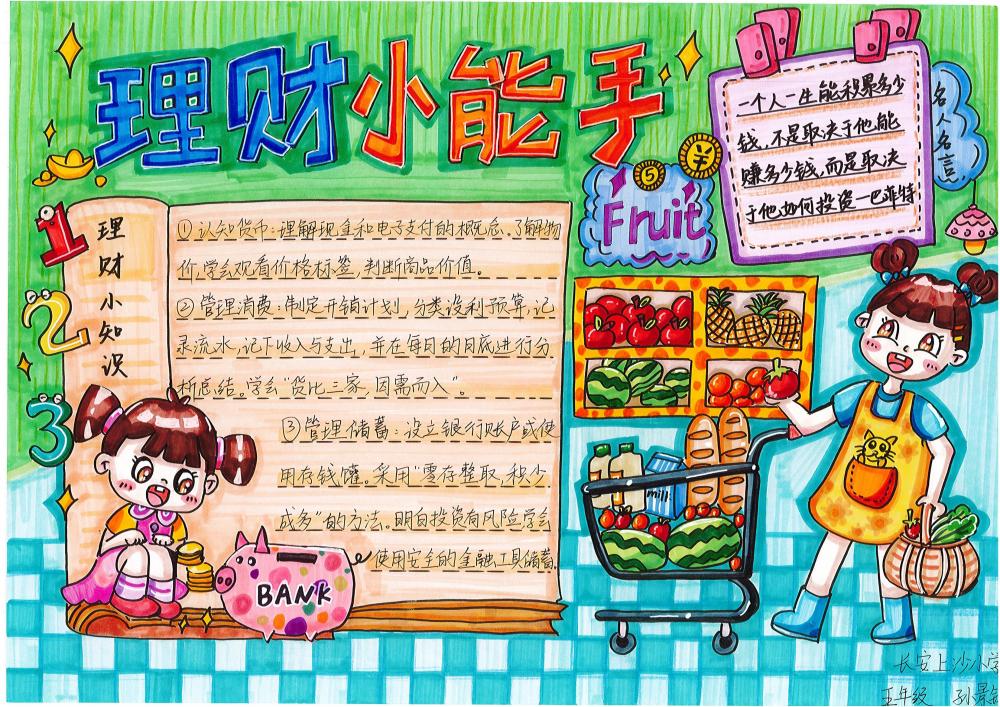 理财小能手
一个人一生能积累多少
钱,不是取决于他能
赚多少钱,而是取决
于他如何投资一巴菲特
名人名言
Fruit
⑤
¥
1
2
3
理财小知识
①认知货币:理解现金和电子支付的概念、了解物
价,学会观看价格标签,判断商品价值。
②管理消费:制定开销计划,分类设利预算,记
录流水,记下收入与支出,并在每日的月底进行分
析总结。学会“货比三家,因需而入”。
③管理储蓄:设立银行账户或使
用存钱罐。采用“零存整取,积少
成多”的方法。明白投资有风险学会
使用安全的金融工具储蓄.
BANK
milk
长安上沙小学
五年级 孙景